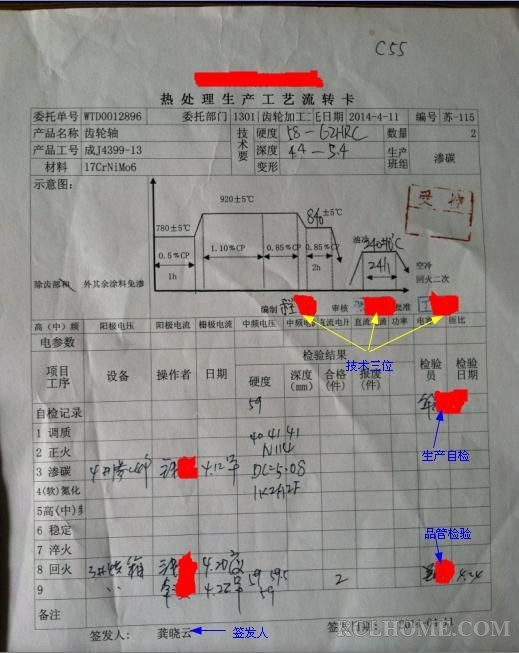 C55
热处理生产工艺流转卡
委托单号 WTD0012896 委托部门 1301 齿轮加工 日期 2014-4-11 编号 苏-115
产品名称 齿轮轴 技术要 硬度 58-62HRC 数量 2
产品工号 成J4399-13 深度 4.4-5.4 生产班组 渗碳
材料 17CrNiMo6 变形
示意图:
920±5℃
780±5℃ 840±5℃ 油冷 240±10℃
0.5%CP 1.10%CP 0.85%CP 0.85%CP 24h 空冷
1h 2h 回火二次
除齿部和 外其余涂料免渗
编制 审核 批准
技术三位
高(中)频 阳极电压 阳极电流 栅极电流 中频电压 中频电 直流电压 直流 功率 匝比
电参数
项目工序 设备 操作者 日期 检验结果 检验员 检验日期
硬度 深度(mm) 合格(件) 报废(件)
自检记录 59
生产自检
1 调质 40 41 41
2 正火
3 渗碳 4.12 DC=5.08
4(软)氮化
5高(中)频
6 稳定
7 淬火
品管检验
8 回火 4.20 4.24
9 4.22 59 59.5 59 2
备注
签发人: 龚晓云 签发人 签发日期:
HOME.COM